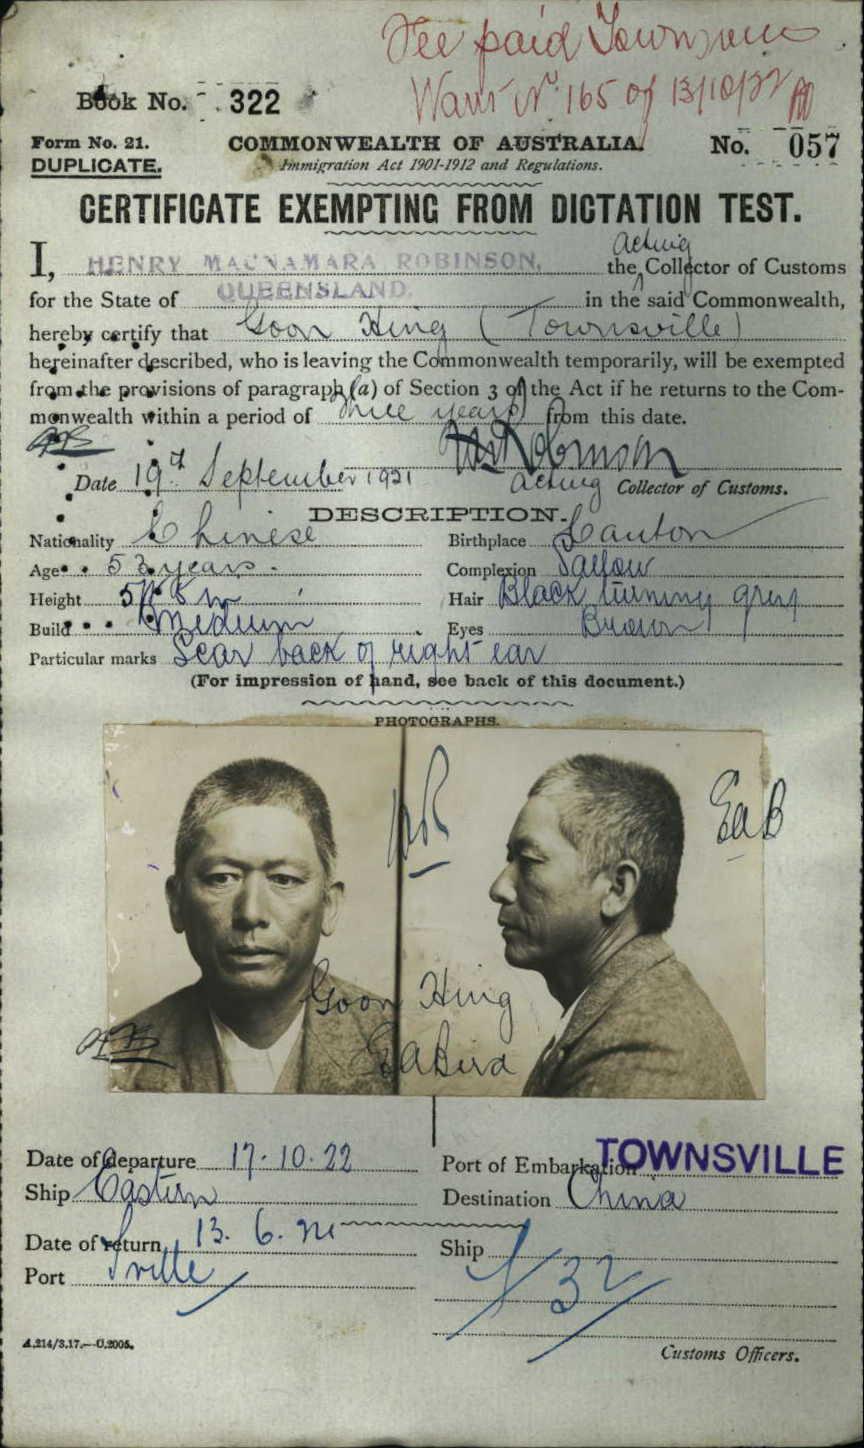 Fee paid Townsville
Warrt No 165 of 13/10/22
Book No. 322
Form No. 21.
COMMONWEALTH OF AUSTRALIA.
No. 057
DUPLICATE.
Immigration Act 1901-1912 and Regulations.
CERTIFICATE EXEMPTING FROM DICTATION TEST.
acting
I, HENRY MACNAMARA ROBINSON, the Collector of Customs
for the State of QUEENSLAND. in the said Commonwealth,
hereby certify that Goon Hing (Townsville)
hereinafter described, who is leaving the Commonwealth temporarily, will be exempted
from the provisions of paragraph (a) of Section 3 of the Act if he returns to the Com-
monwealth within a period of three years from this date.
HRobinson
Date 19th September 1921
acting Collector of Customs.
DESCRIPTION.
Nationality Chinese
Birthplace Canton
Age 53 years.
Complexion Sallow
Height 5ft 8in
Hair Black turning grey
Build Medium
Eyes Brown
Particular marks Scar back of right ear
(For impression of hand, see back of this document.)
PHOTOGRAPHS.
HR
EaB
Goon Hing
EaBird
Date of departure 17.10.22
Port of Embarkation TOWNSVILLE
Ship Eastern
Destination China
Date of return 13.6.24
Ship
Port Tville
/32
A.214/3.17.—C.2005.
Customs Officers.